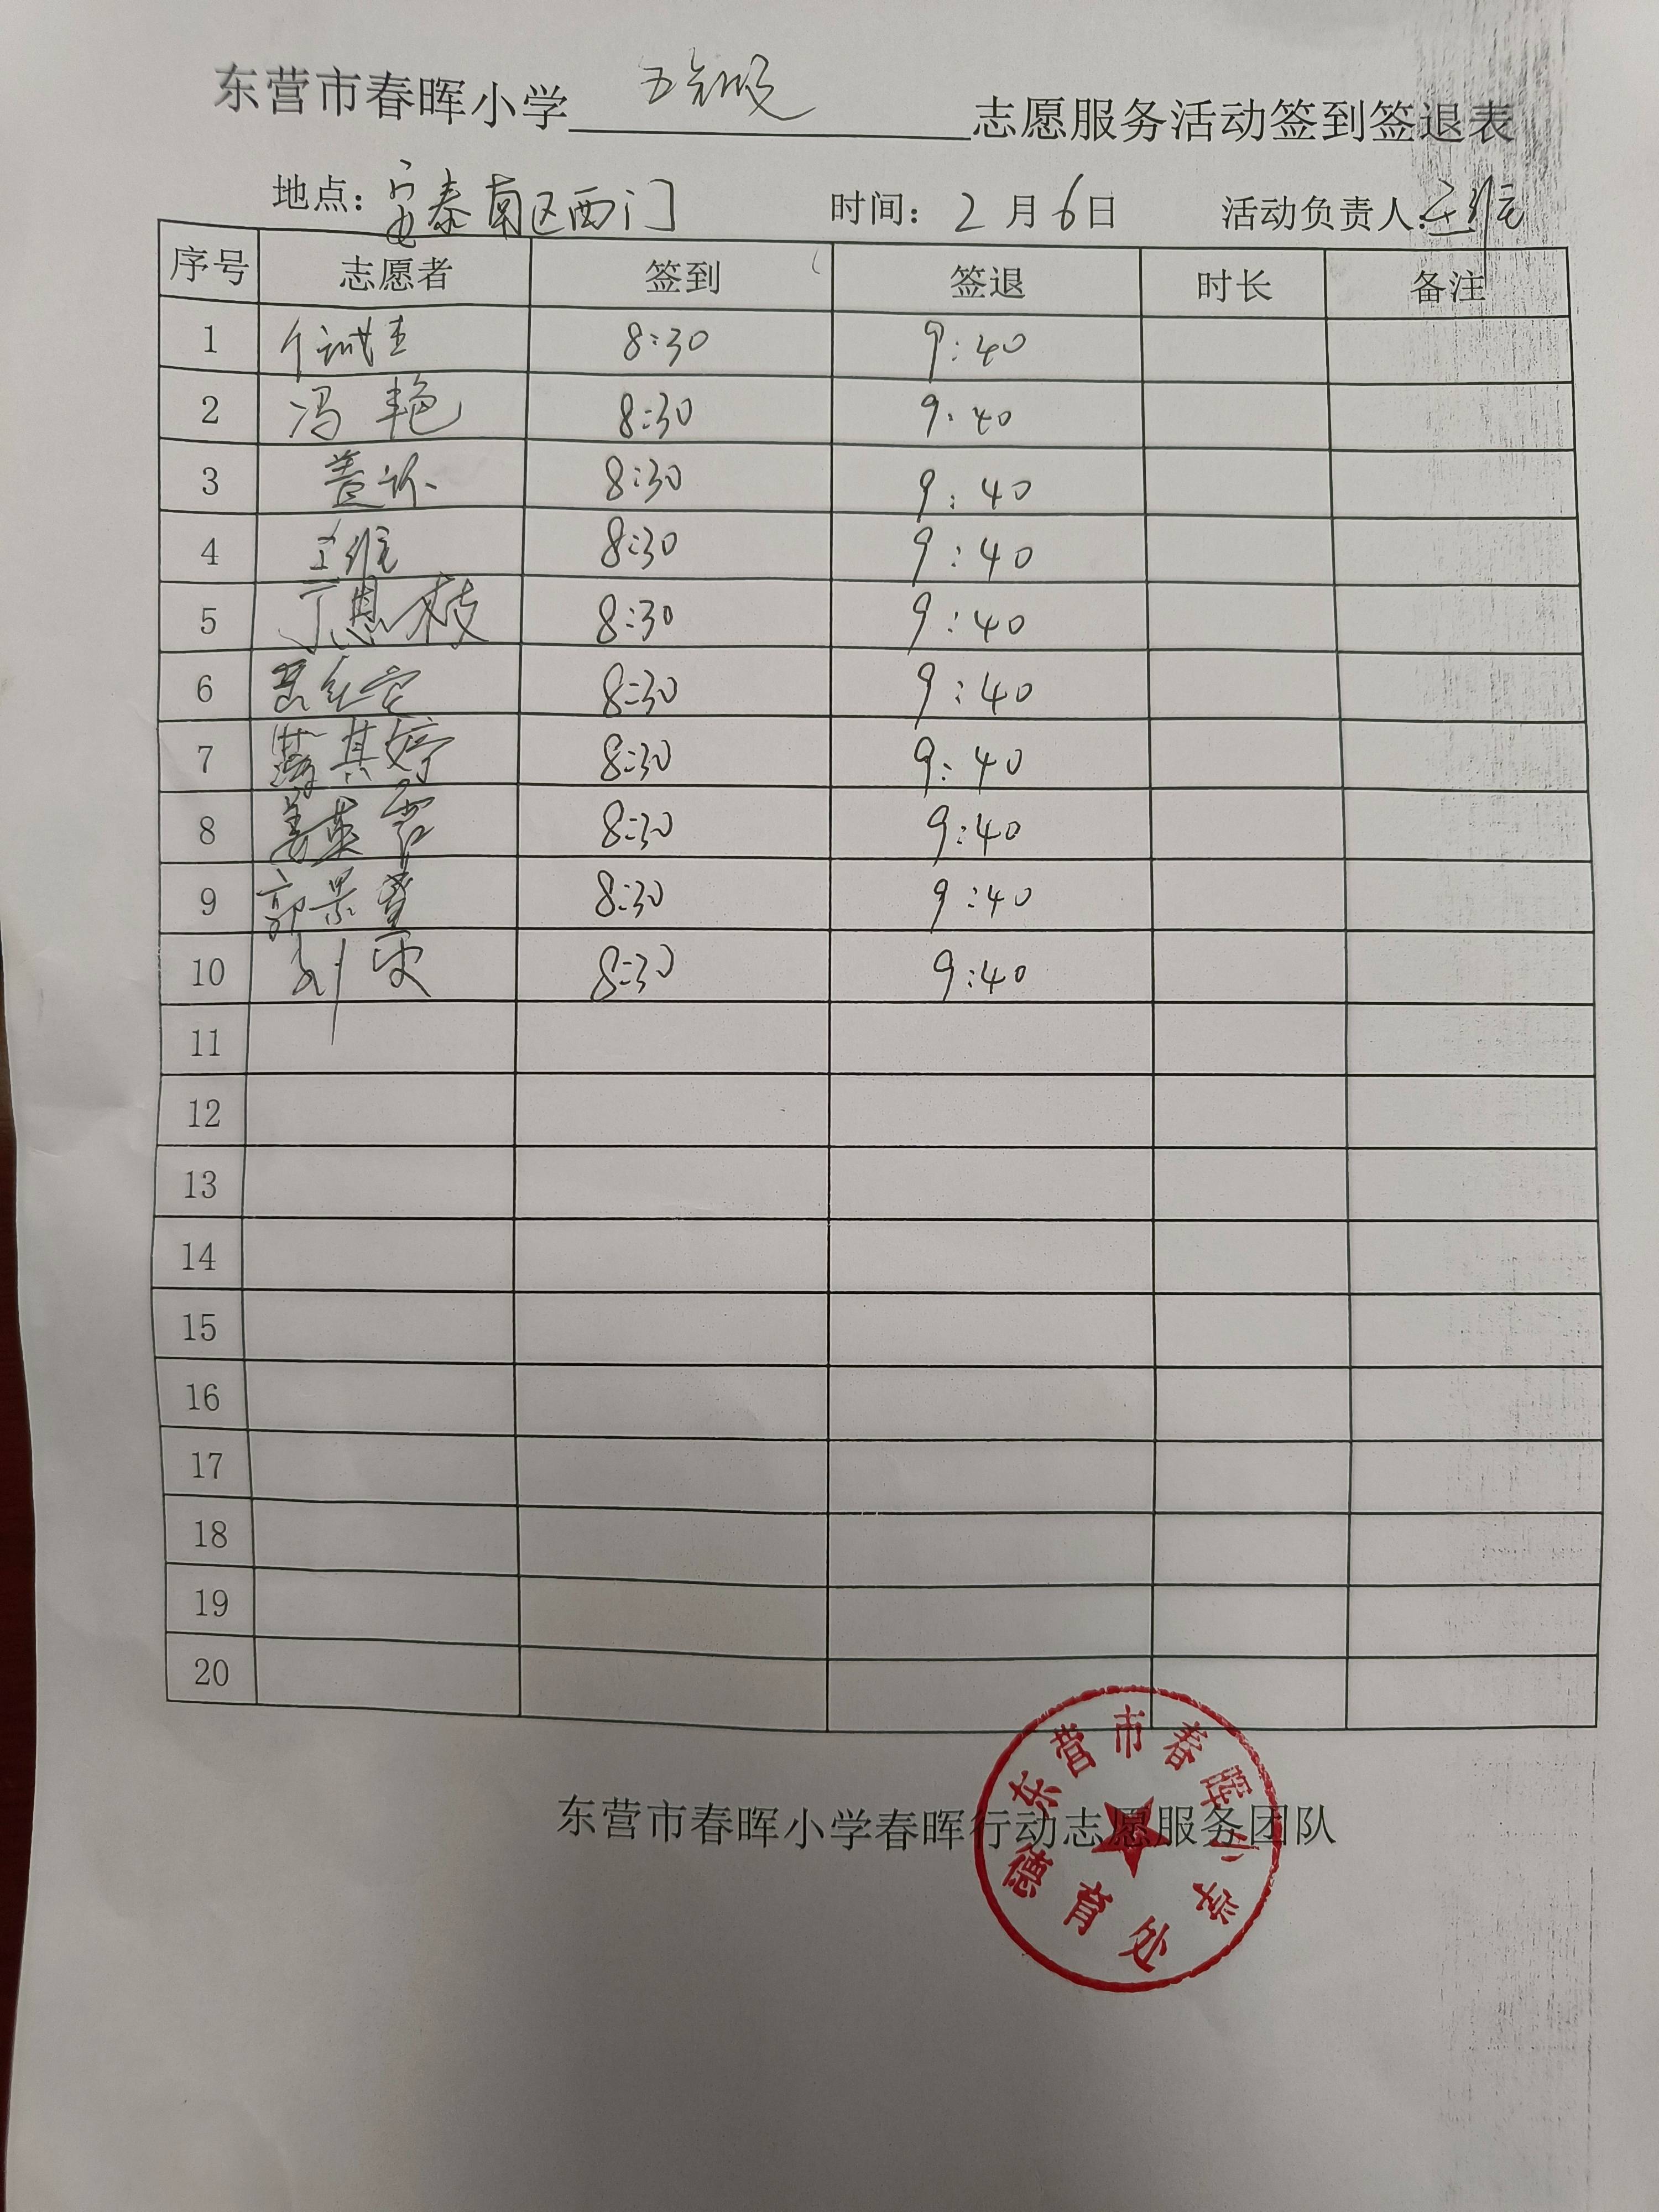 东营市春晖小学 五年级 志愿服务活动签到签退表
地点：安泰南区西门 时间：2月6日 活动负责人：王维
序号 志愿者 签到 签退 时长 备注
1 8:30 9:40
2 冯艳 8:30 9:40
3 盖 8:30 9:40
4 王维 8:30 9:40
5 丁恩枝 8:30 9:40
6 8:30 9:40
7 其婷 8:30 9:40
8 姜英 8:30 9:40
9 郭景 8:30 9:40
10 刘雯 8:30 9:40
11
12
13
14
15
16
17
18
19
20
东营市春晖小学春晖行动志愿服务团队
东营市春晖小学
德育处